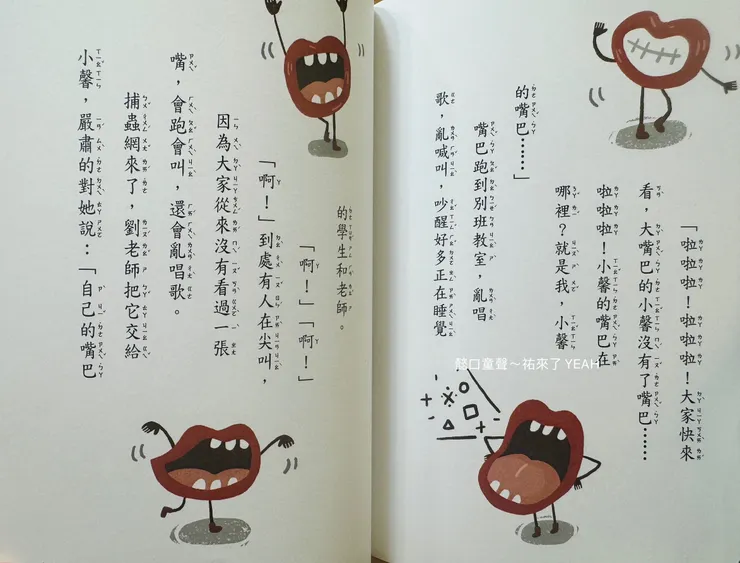 「啦啦啦！啦啦啦！大家快來
看，大嘴巴的小馨沒有了嘴巴……
啦啦啦！小馨的嘴巴在
哪裡？就是我，小馨
的嘴巴……」
嘴巴跑到別班教室，亂唱
歌，亂喊叫，吵醒好多正在睡覺
的學生和老師。
「啊！」「啊！」
「啊！」到處有人在尖叫，
因為大家從來沒有看過一張
嘴，會跑會叫，還會亂唱歌。
捕蟲網來了，劉老師把它交給
小馨，嚴肅的對她說：「自己的嘴巴
懿口童聲～祐來了 YEAH